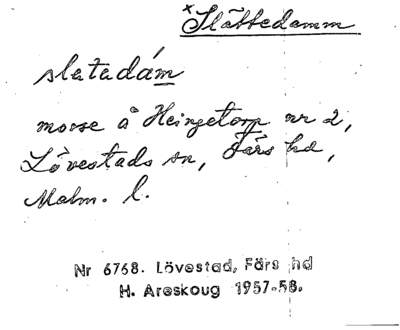 × Slättedamm
slatadám
mosse å Heingetorp nr 2,
Lövestads sn, Färs hd,
Malm. l.
Nr 6768. Lövestad, Färs hd
H. Areskoug 1957-58.